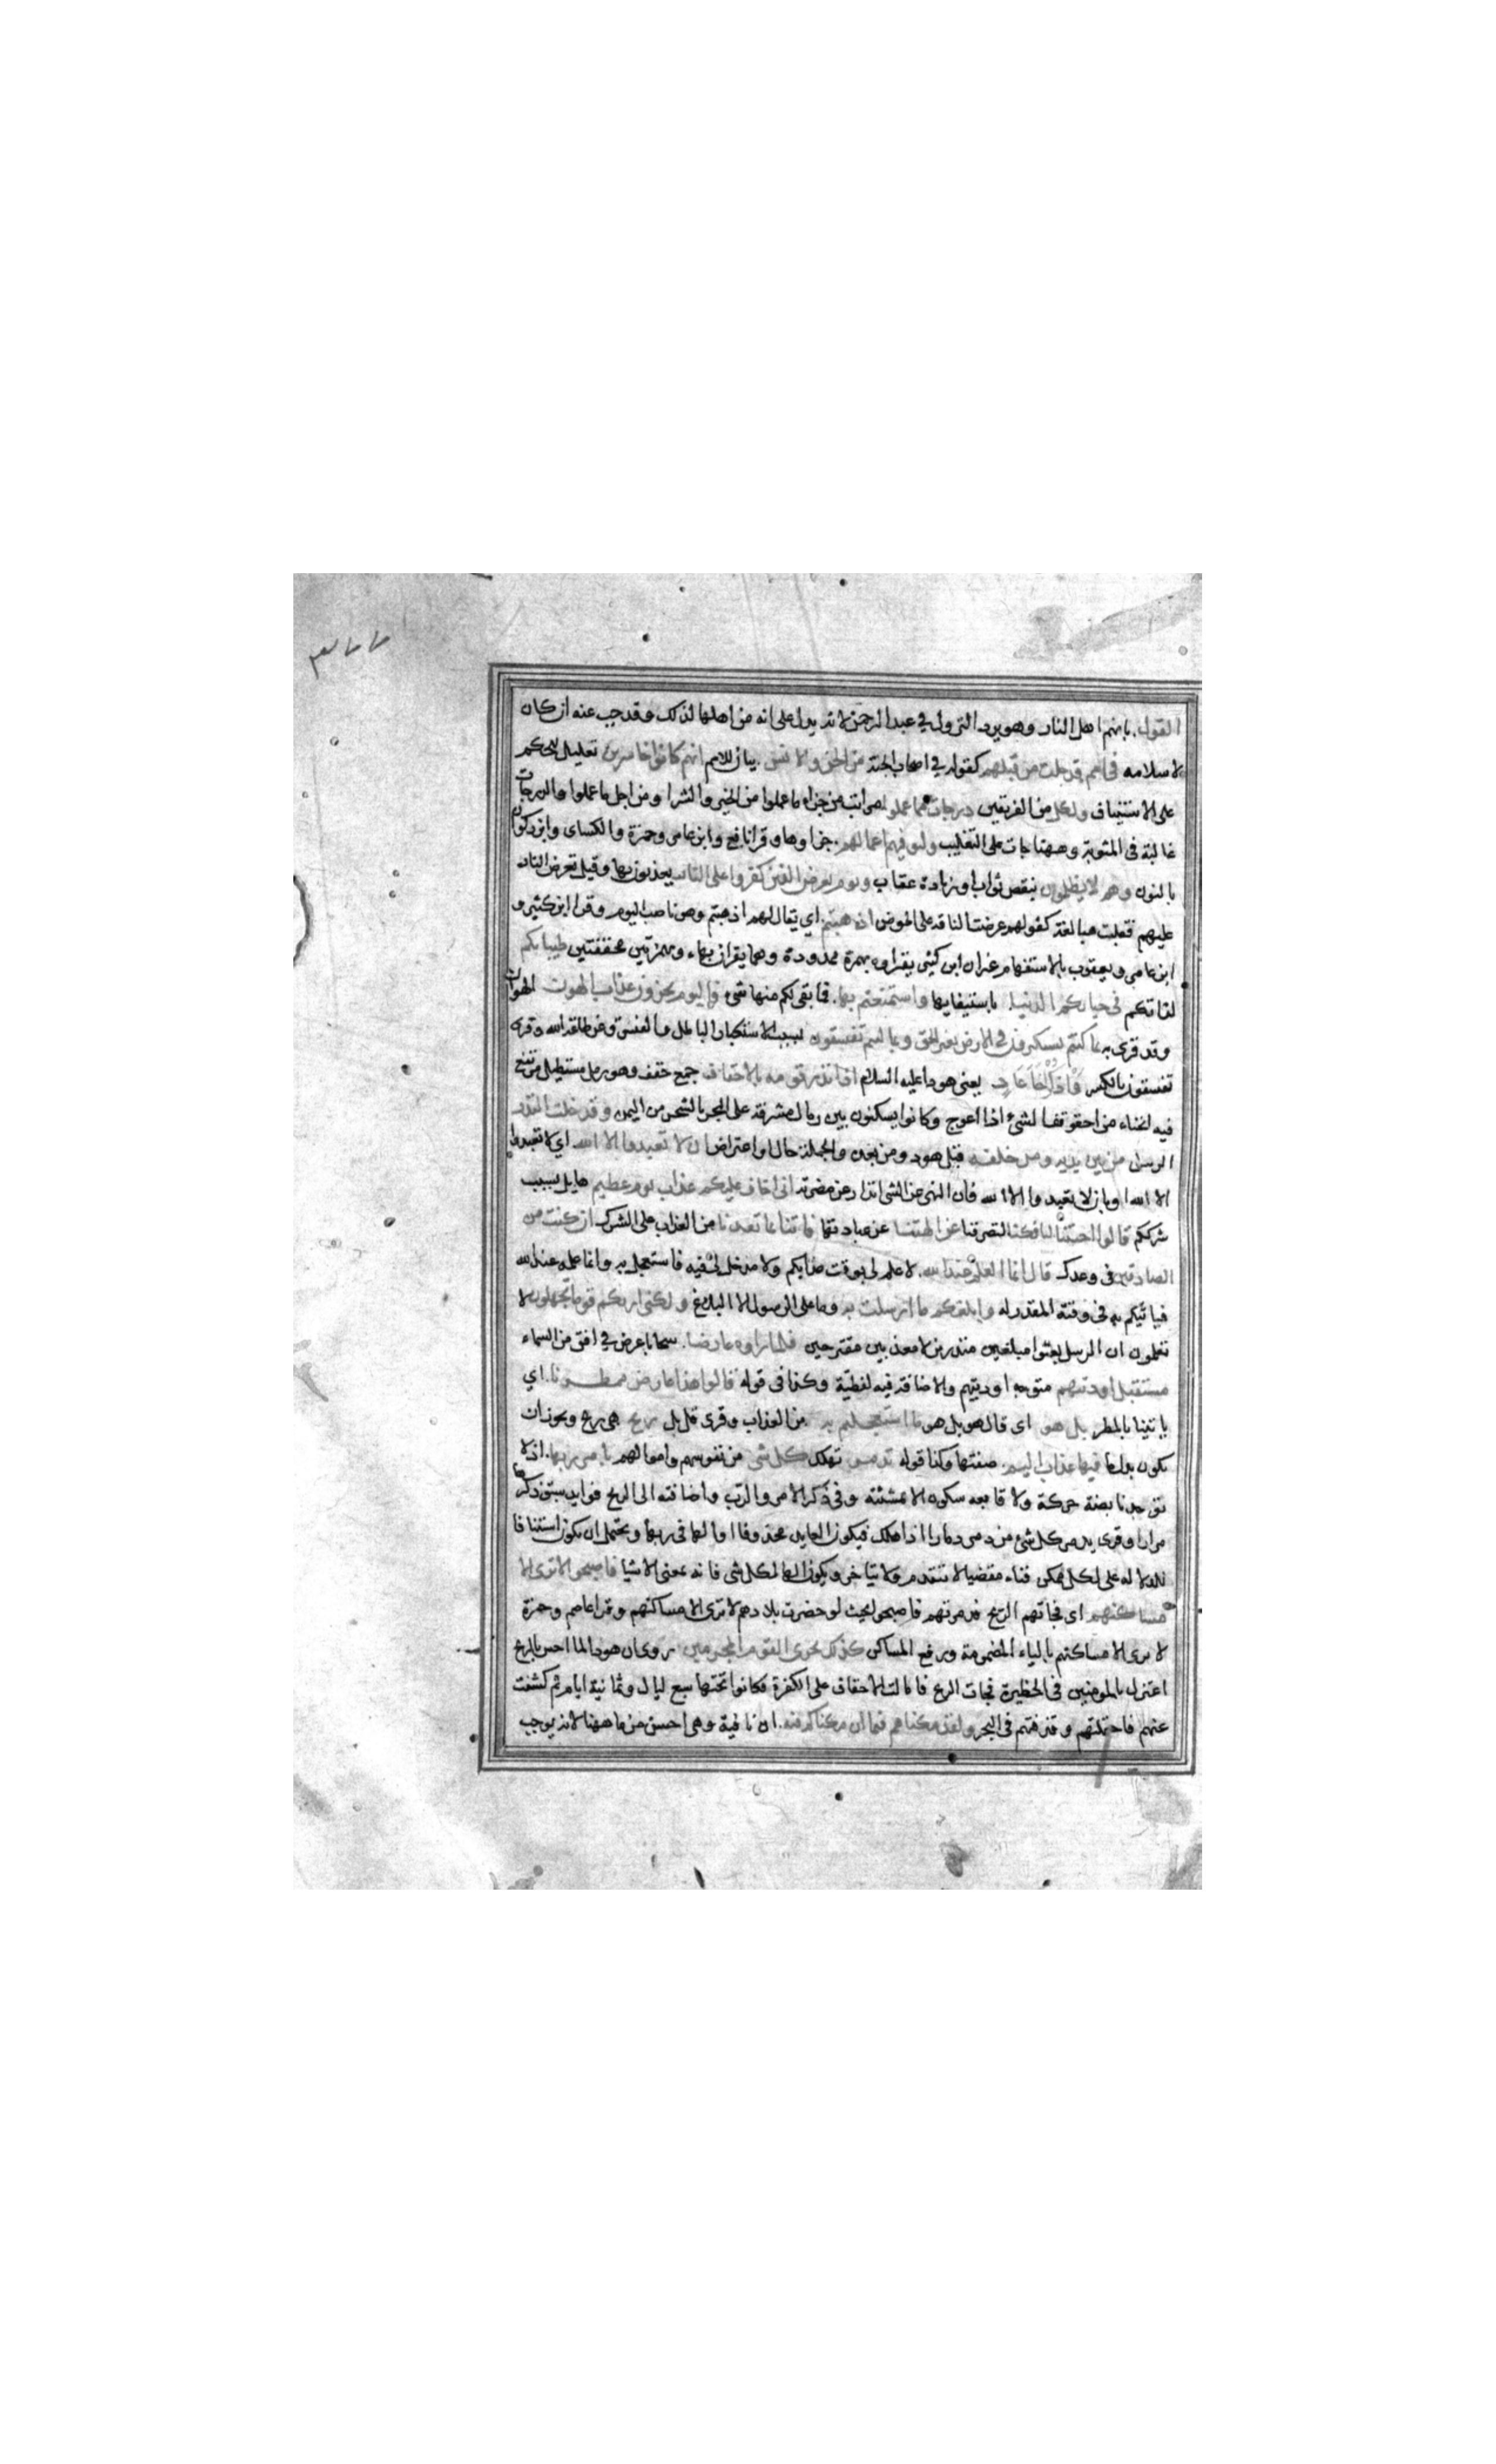 ٣٧٧
القول بانهم اهل النار وهو يرد النزول في عبد الرحمن لانه يدل على انه من اهلها لذلك وقد جب عنه ان كان
لاسلامه في امم قد خلت من قبلهم كقوله في اصحاب الجنة من الجن والانس بيان للامم انهم كانوا خاسرين تعليل للحكم
على الاستيناف ولكل من الفريقين درجات مما عملوا مراتب من جزاء ما عملوا من الخير والشر او من اجل ما عملوا والدرجات
غالبة في المثوبة وههنا جات على التغليب وليوفيهم اعمالهم جزاوها وقرا نافع وابن عامر وحمزة والكساى وابن ذكوان
بالنون وهم لا يظلمون بنقص ثواب او زيادة عقاب ويوم يعرض الذين كفروا على النار يعذبون بها وقيل تعرض النار
عليهم فقلبت مبالغة كقولهم عرضت الناقة على الحوض اذهبتم اي يقال لهم اذهبتم وهو ناصب اليوم وقرا ابن كثير و
ابن عامر ويعقوب بالاستفهام غير ان ابن كثير يقراوه بهمزة ممدودة وهما يقران بها وبهمزتين محققتين طيباتكم
لذاتكم في حياتكم الدنيا باستيفايها واستمتعتم بها فما بقى لكم منها شئ فاليوم تجزون عذاب الهون الهوان
وقد قرى به بما كنتم تستكبرون في الارض بغير الحق وبما كنتم تفسقون بسبب الاستكبار الباطل والفسق عن طاقة الله وقرى
تفسقون بالكسر واذكر اخا عاد يعنى هودا عليه السلام اذ انذر قومه بالاحقاف جمع حقف وهو رمل مستطيل مرتفع
فيه انحناء من احقوقف الشئ اذا اعوج وكانوا يسكنون بين رمال مشرفة على البحر بالشحر من اليمن وقد خلت النذر
الرسل من بين يديه ومن خلفه قبل هود ومن بعده والجملة حال او اعتراض ان لا تعبدوا الا الله اي لا تعبدوا
الا الله او بان لا تعبدوا الا الله فان النهى عن الشى انذار عن مضرته انى اخاف عليكم عذاب يوم عظيم هايل بسبب
شرككم قالوا اجئتنا لتافكنا لتصرفنا عن الهتنا عن عبادتها فاتنا بما تعدنا من العذاب على الشرك ان كنت من
الصادقين فى وعدك قال انما العلم عند الله لا علم لى بوقت عذابكم ولا مدخل لى فيه فاستعجل به وانما علمه عند الله
فياتيكم به فى وقته المقدر له وابلغكم ما ارسلت به وما على الرسول الا البلاغ ولكنى اريكم قوما تجهلون لا
تعلمون ان الرسل بعثوا مبلغين منذرين لا معذبين مقترحين فلما راوه عارضا سحابا عرض في افق من السماء
مستقبل اوديتهم متوجه اوديتهم والاضافة فيه لفظية وكذا فى قوله قالوا هذا عارض ممطرنا اي
ياتينا بالمطر بل هو اى قال هو بل هو ما استعجلتم به من العذاب وقرى قل بل ريح هى ريح ويجوز ان
يكون بدل ما فيها عذاب اليم صفتها وكذا قوله تدمر تهلك كل شى من نفوسهم واموالهم بامر ربها اذ لا
توجد نابضة حركة ولا قابضه سكون الا بمشئته وفى ذكر الامر والرب واضافته الى الريح فوايد سبق ذكرها
مرارا وقرى يدمر كل شئ من دمر دمارا اذا هلك فيكون العايد محذوفا او الها فى ربها ويحتمل ان يكون استينافا
للدلاله على ان لكل ممكن فناء مقضيا لا يتقدم ولا يتاخر ويكون الها لكل شى فانه بمعنى الاشيا فاصبحوا لا ترى الا
مساكنهم اى فجاتهم الريح فدمرتهم فاصبحوا بحيث لو حضرت بلادهم لا ترى الا مساكنهم وقرا عاصم وحمزة
لا يرى الا مساكنهم بالياء المضمومة ورفع المساكن كذلك نجزى القوم المجرمين روى ان هودا لما احس بالريح
اعتزل بالمومنين فى الحظيرة فجات الريح فامالت الاحقاف على الكفرة فكانوا تحتها سبع ليال وثمانية ايام ثم كشفت
عنهم فاحتملتهم وقذفتهم فى البحر ولقد مكناهم فيما ان مكناكم فيه ان نافية وهى احسن من ما ههنا لانه يوجب